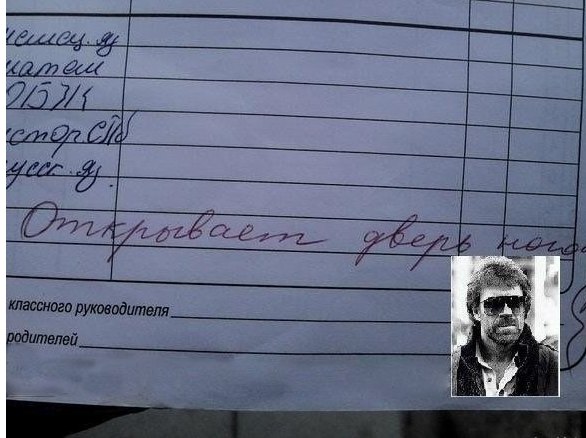 немец.яз
матем
ОБЖ
истор СПб
русск.яз.
Открывает дверь ногой
классного руководителя
родителей